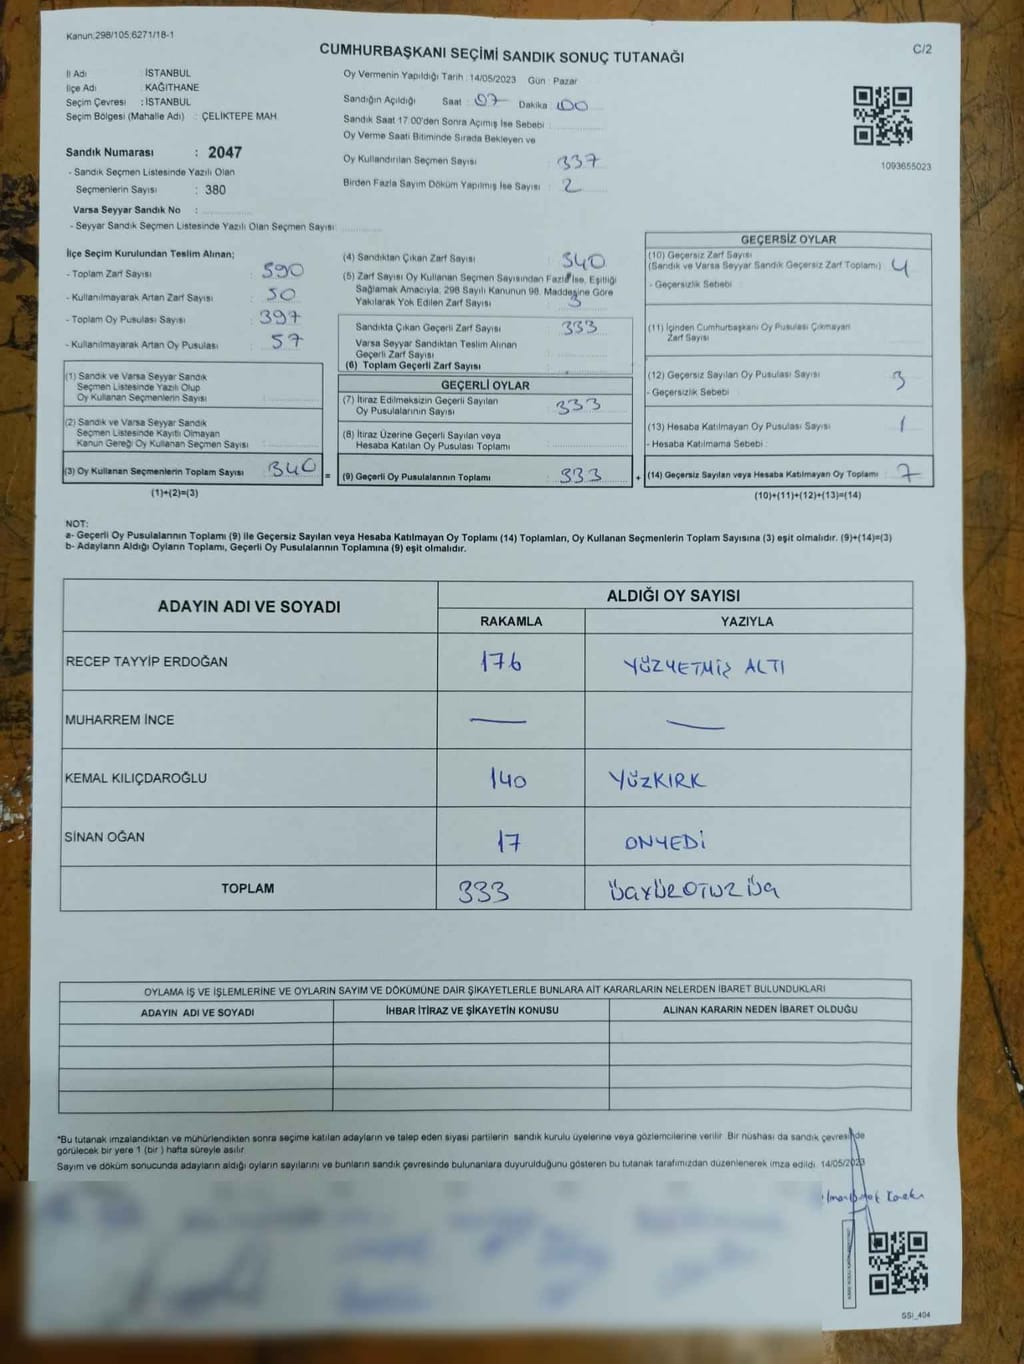 Kanun:298/105:6271/18-1
C/2
CUMHURBAŞKANI SEÇİMİ SANDIK SONUÇ TUTANAĞI
İl Adı : İSTANBUL
İlçe Adı : KAĞITHANE
Seçim Çevresi : İSTANBUL
Seçim Bölgesi (Mahalle Adı) : ÇELİKTEPE MAH.
Sandık Numarası : 2047
- Sandık Seçmen Listesinde Yazılı Olan
Seçmenlerin Sayısı : 380
Varsa Seyyar Sandık No :
- Seyyar Sandık Seçmen Listesinde Yazılı Olan Seçmen Sayısı:
Oy Vermenin Yapıldığı Tarih : 14/05/2023 Gün : Pazar
Sandığın Açıldığı Saat : 07 Dakika : 00
Sandık Saat 17.00'den Sonra Açımış İse Sebebi :
Oy Verme Saati Bitiminde Sırada Bekleyen ve
Oy Kullandırılan Seçmen Sayısı : 337
Birden Fazla Sayım Döküm Yapılmış İse Sayısı : 2
1093655023
İlçe Seçim Kurulundan Teslim Alınan;
- Toplam Zarf Sayısı : 390
- Kullanılmayarak Artan Zarf Sayısı : 50
- Toplam Oy Pusulası Sayısı : 397
- Kullanılmayarak Artan Oy Pusulası : 57
(1) Sandık ve Varsa Seyyar Sandık
Seçmen Listesinde Yazılı Olup
Oy Kullanan Seçmenlerin Sayısı :
(2) Sandık ve Varsa Seyyar Sandık
Seçmen Listesinde Kayıtlı Olmayan
Kanun Gereği Oy Kullanan Seçmen Sayısı :
(3) Oy Kullanan Seçmenlerin Toplam Sayısı : 340 =
(1)+(2)=(3)
(4) Sandıktan Çıkan Zarf Sayısı : 340
(5) Zarf Sayısı Oy Kullanan Seçmen Sayısından Fazla İse, Eşitliği
Sağlamak Amacıyla, 298 Sayılı Kanunun 98. Maddesine Göre
Yakılarak Yok Edilen Zarf Sayısı : 3
Sandıkta Çıkan Geçerli Zarf Sayısı : 333
Varsa Seyyar Sandıktan Teslim Alınan
Geçerli Zarf Sayısı :
(6) Toplam Geçerli Zarf Sayısı :
GEÇERLİ OYLAR
(7) İtiraz Edilmeksizin Geçerli Sayılan
Oy Pusulalarının Sayısı : 333
(8) İtiraz Üzerine Geçerli Sayılan veya
Hesaba Katılan Oy Pusulası Toplamı :
(9) Geçerli Oy Pusulalarının Toplamı : 333 +
GEÇERSİZ OYLAR
(10) Geçersiz Zarf Sayısı
(Sandık ve Varsa Seyyar Sandık Geçersiz Zarf Toplamı) : 4
- Geçersizlik Sebebi :
(11) İçinden Cumhurbaşkanı Oy Pusulası Çıkmayan
Zarf Sayısı :
(12) Geçersiz Sayılan Oy Pusulası Sayısı : 3
- Geçersizlik Sebebi :
(13) Hesaba Katılmayan Oy Pusulası Sayısı : 1
- Hesaba Katılmama Sebebi :
(14) Geçersiz Sayılan veya Hesaba Katılmayan Oy Toplamı : 7
(10)+(11)+(12)+(13)=(14)
NOT:
a- Geçerli Oy Pusulalarının Toplamı (9) ile Geçersiz Sayılan veya Hesaba Katılmayan Oy Toplamı (14) Toplamları, Oy Kullanan Seçmenlerin Toplam Sayısına (3) eşit olmalıdır. (9)+(14)=(3)
b- Adayların Aldığı Oyların Toplamı, Geçerli Oy Pusulalarının Toplamına (9) eşit olmalıdır.
ADAYIN ADI VE SOYADI
ALDIĞI OY SAYISI
RAKAMLA YAZIYLA
RECEP TAYYİP ERDOĞAN 176 YÜZYETMİŞ ALTI
MUHARREM İNCE — —
KEMAL KILIÇDAROĞLU 140 YÜZKIRK
SİNAN OĞAN 17 ONYEDİ
TOPLAM 333 ÜÇYÜZOTUZ ÜÇ
OYLAMA İŞ VE İŞLEMLERİNE VE OYLARIN SAYIM VE DÖKÜMÜNE DAİR ŞİKAYETLERLE BUNLARA AİT KARARLARIN NELERDEN İBARET BULUNDUKLARI
ADAYIN ADI VE SOYADI İHBAR İTİRAZ VE ŞİKAYETİN KONUSU ALINAN KARARIN NEDEN İBARET OLDUĞU
*Bu tutanak imzalandıktan ve mühürlendikten sonra seçime katılan adayların ve talep eden siyasi partilerin sandık kurulu üyelerine veya gözlemcilerine verilir. Bir nüshası da sandık çevresinde
görülecek bir yere 1 (bir ) hafta süreyle asılır.
Sayım ve döküm sonucunda adayların aldığı oyların sayılarını ve bunların sandık çevresinde bulunanlara duyurulduğunu gösteren bu tutanak tarafımızdan düzenlenerek imza edildi. 14/05/2023
SSI_404